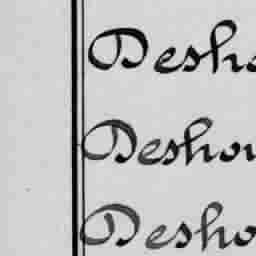 Desho
Deshou
Desho